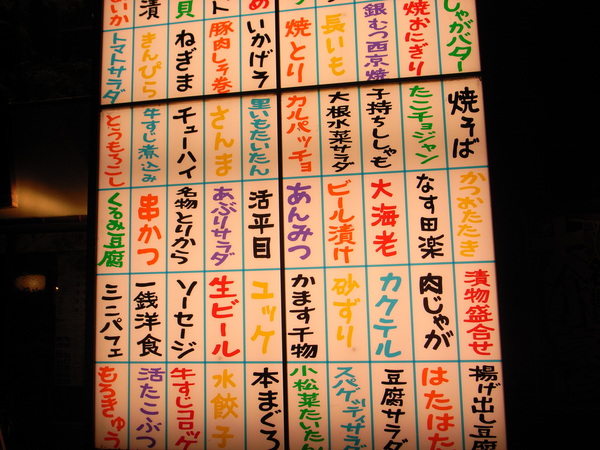 しゃがバター
焼おにぎり
銀むつ西京焼
長いも
焼とり
いかげそ
豚肉しそ巻
ねぎま
きんぴら
トマトサラダ
焼そば
たこチョジャン
子持ちししゃも
大根水菜サラダ
カルパッチョ
里いもたいたん
さんま
チューハイ
牛すじ煮込み
とうもろこし
かつおたたき
なす田楽
大海老
ビール漬け
あんみつ
活平目
あぶりサラダ
名物とりから
串かつ
くるみ豆腐
漬物盛合せ
肉じゃが
カクテル
砂ずり
かます干物
ユッケ
生ビール
ソーセージ
一銭洋食
ミニパフェ
揚げ出し豆腐
はたはた
豆腐サラダ
スパゲッティサラダ
小松菜たいたん
本まぐろ
水餃子
牛すじコロッケ
活たこぶつ
もろきゅう